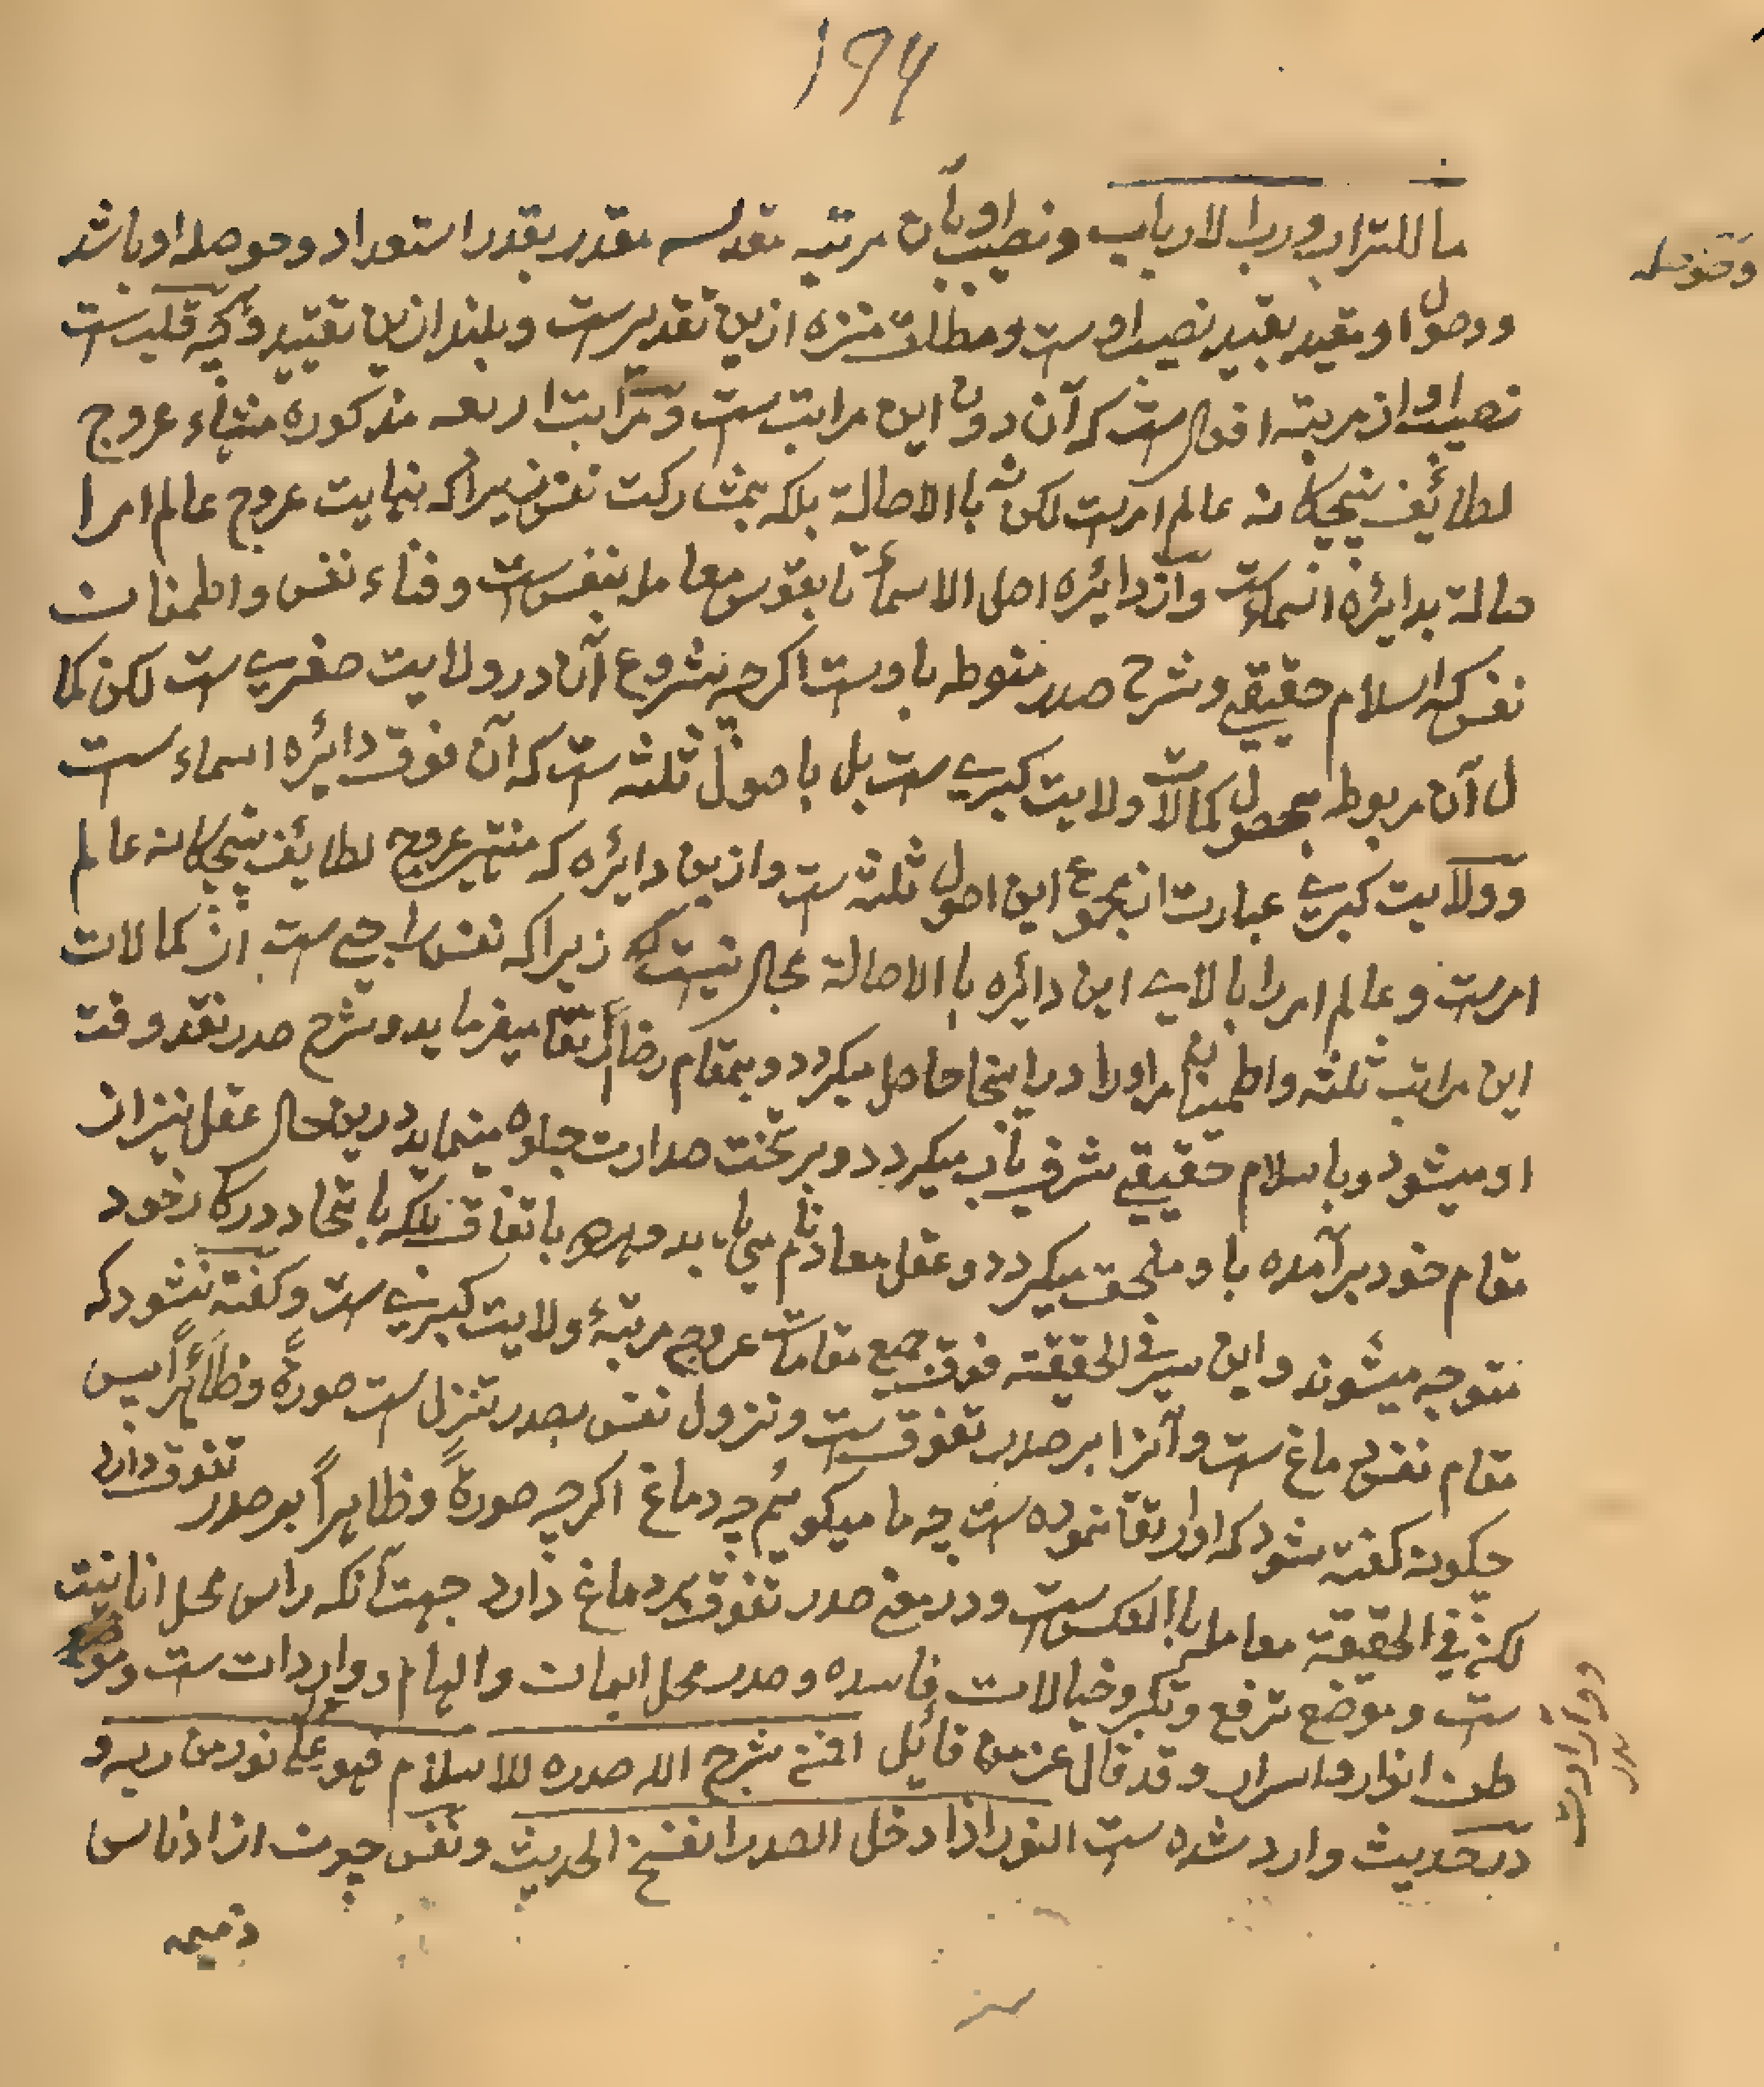 ۱۹۴
ما للتراب ورب الارباب ونصیب او بآن مرتبه مقدسه مقدر بقدر استعداد وحوصله او باشد
وحوصله
ووصول او مقید بقید نصیب اوست ومطلق منزه ازین تقدیرست وبلند ازین تقیید وآنچه قلب ست
نصیب او از مرتبه افعال ست که آن دون این مراتب ست ومراتب اربعه مذکوره منتهاء عروج
لطائف پنجکانه عالم امرست لکن نه باالاصالة بلکه بمشارکت نفس زیراکه نهایت عروج عالم امر ا
صالة بدایره اسماست وآز دایره اصل الاسمأ تا بقوس معامله بنفس ست وفناء نفس واطمنان
نفس که اسلام حقیقی وشرح صدر منوطه باوست اکرچه شروع آن در ولایت صغری ست لکن کما
ل آن مربوط بحصول کمالات ولایت کبری ست بل باصول ثلثه ست که آن فوق دایره اسماء ست
وولایت کبری عبارت از مجموع این اصول ثلثه ست وازین دایره که منتهی عروج لطایف پنجکانه عالم
امرست وعالم امر را بالای این دائره باالاصالة مجال نیست که زیراکه نفس راجی ست از کمالات
این مراتب ثلثه واطمینان مر اورا در اینجا حاصل میکردد وبمقام رضا ارتقا میفرماید وشرح صدر نقد وقت
او میشود وباسلام حقیقی شرف یاب میکردد وبر تخت صدارت جلوه مینماید درین حال عقل نیز از
مقام خود برآمده باو ملحق میکردد وعقل معاد نام می یابد وهر دو باتفاق بلکه باتحاد در کار خود
متوجه میشوند واین سیر فی الحقیقته فوق جمیع مقامات عروج مرتبهٔ ولایت کبری ست وکفته نشود که
مقام نفس دماغ ست وآنرا بر صدر تفوق ست ونزول نفس بصدر تنزل ست صورةً وظاهراً پس
چکونه کفته شود که او ارتقا نموده ست چه ما میکویم چه دماغ اکرچه صورةً وظاهراً بر صدر تفوق دارد
لکن فی الحقیقة معامله باالعکس ست ودر معنی صدر تفوق بر دماغ دارد جهت آنکه راس محل انانیت
ست وموضع ترفع وتکبر وخیالات فاسده وصدر محل ایمان والهام وواردات ست ومو
وواردات
طن انوار واسرار وقد قال عز من قائل افمن شرح الله صدره للاسلام فهو علی نور من ربه و
در حدیث وارد شده ست النور اذا دخل الصدر انفسخ الحدیث ونفس چون از ادناس
ذمیمه